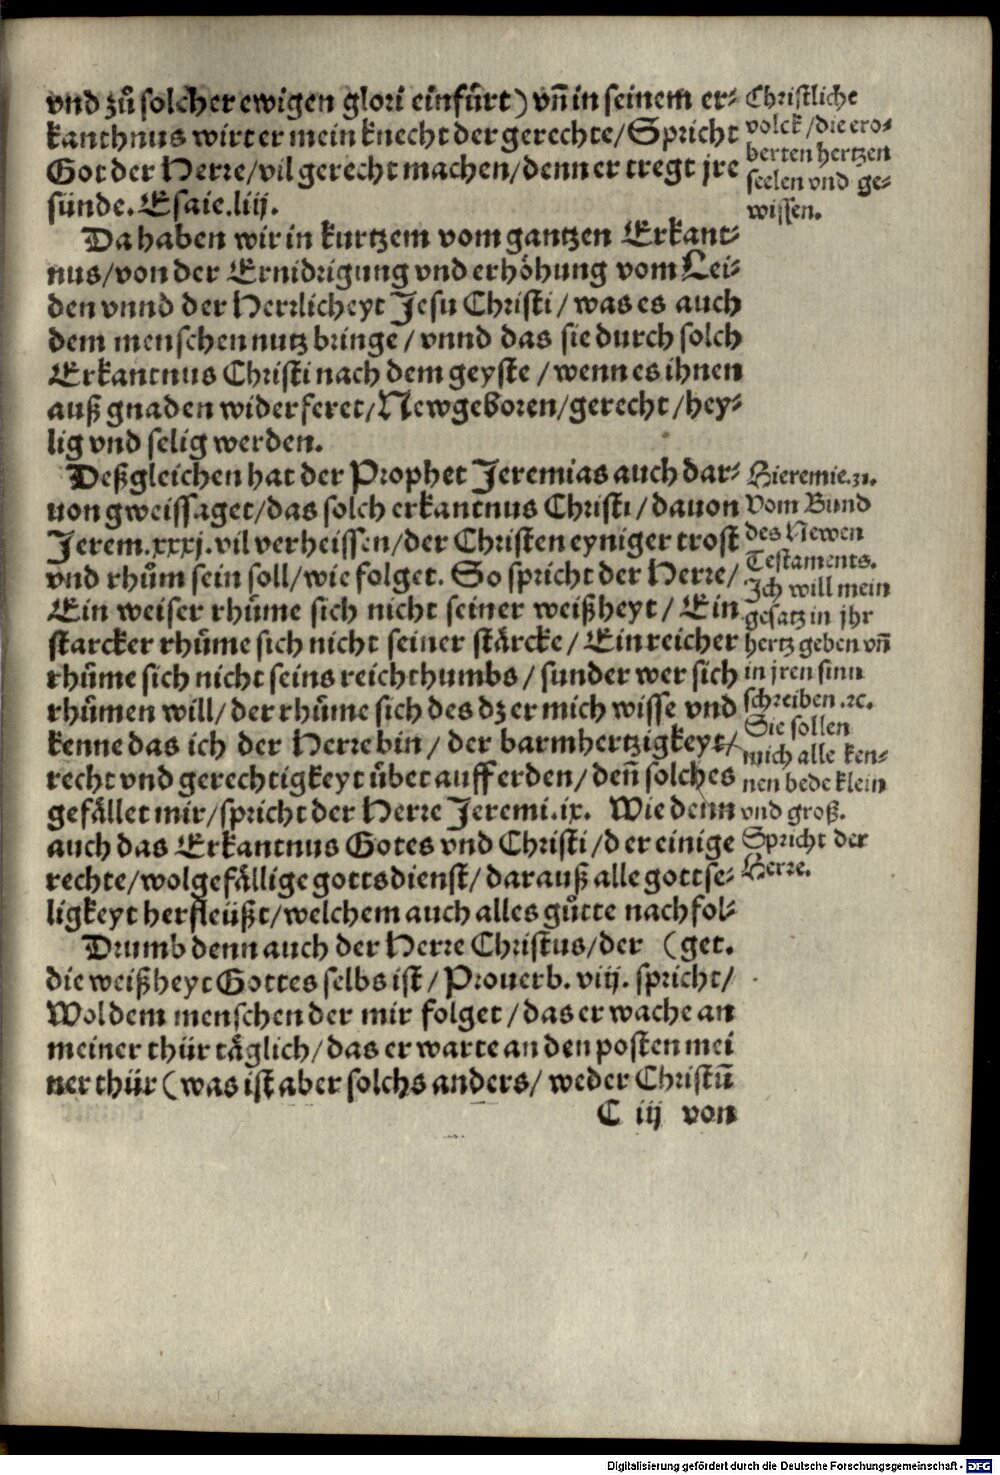 vnd zů solcher ewigen glori einfůrt) vñ in seinem er-
kanthnus wirt er mein knecht der gerechte/Spricht
Got der Herre/vil gerecht machen/denn er tregt jre
sünde. Esaie.liij.
Da haben wir in kurtzem vom gantzen Erkant-
nus/von der Ernidrigung vnd erhöhung vom Lei-
den vnnd der Herrlicheyt Jesu Christi/was es auch
dem menschen nutz bringe/vnnd das sie durch solch
Erkantnus Christi nach dem geyste/wenn es ihnen
auß gnaden widerferet/Newgeboren/gerecht/hey-
lig vnd selig werden.
Deßgleichen hat der Prophet Jeremias auch dar-
uon gweissaget/das solch erkantnus Christi/dauon
Jerem.xxxj.vil verheissen/der Christen eyniger trost
vnd rhům sein soll/wie folget. So spricht der Herre/
Ein weiser rhůme sich nicht seiner weißheyt/Ein
starcker rhůme sich nicht seiner stärcke/Ein reicher
rhůme sich nicht seins reichthumbs/sunder wer sich
rhůmen will/der rhůme sich des dz er mich wisse vnd
kenne das ich der Herre bin/der barmhertzigkeyt/
recht vnd gerechtigkeyt übet auff erden/deñ solches
gefället mir/spricht der Herre Jeremi.ix. Wie denn
auch das Erkantnus Gotes vnd Christi/der einige
rechte/wolgefällige gottsdienst/darauß alle gottse-
ligkeyt herfleüßt/welchem auch alles gůtte nachfol-
Drumb denn auch der Herre Christus/der (get.
die weißheyt Gottes selbs ist/Prouerb.viij. spricht/
Wol dem menschen der mir folget/das er wache an
meiner thür täglich/das er warte an den posten mei
ner thür (was ist aber solchs anders/weder Christū
C iij von
Christliche
volck/die ero-
berten hertzen
seelen vnd ge-
wissen.
Hieremie.31.
Vom Bund
des Newen
Testaments.
Ich will mein
gesatz in jhr
hertz geben vñ
in jren sinn
schreiben.ꝛc.
Sie sollen
mich alle ken-
nen bede klein
vnd groß.
Spricht der
Herre.
Digitalisierung gefördert durch die Deutsche Forschungsgemeinschaft - DFG